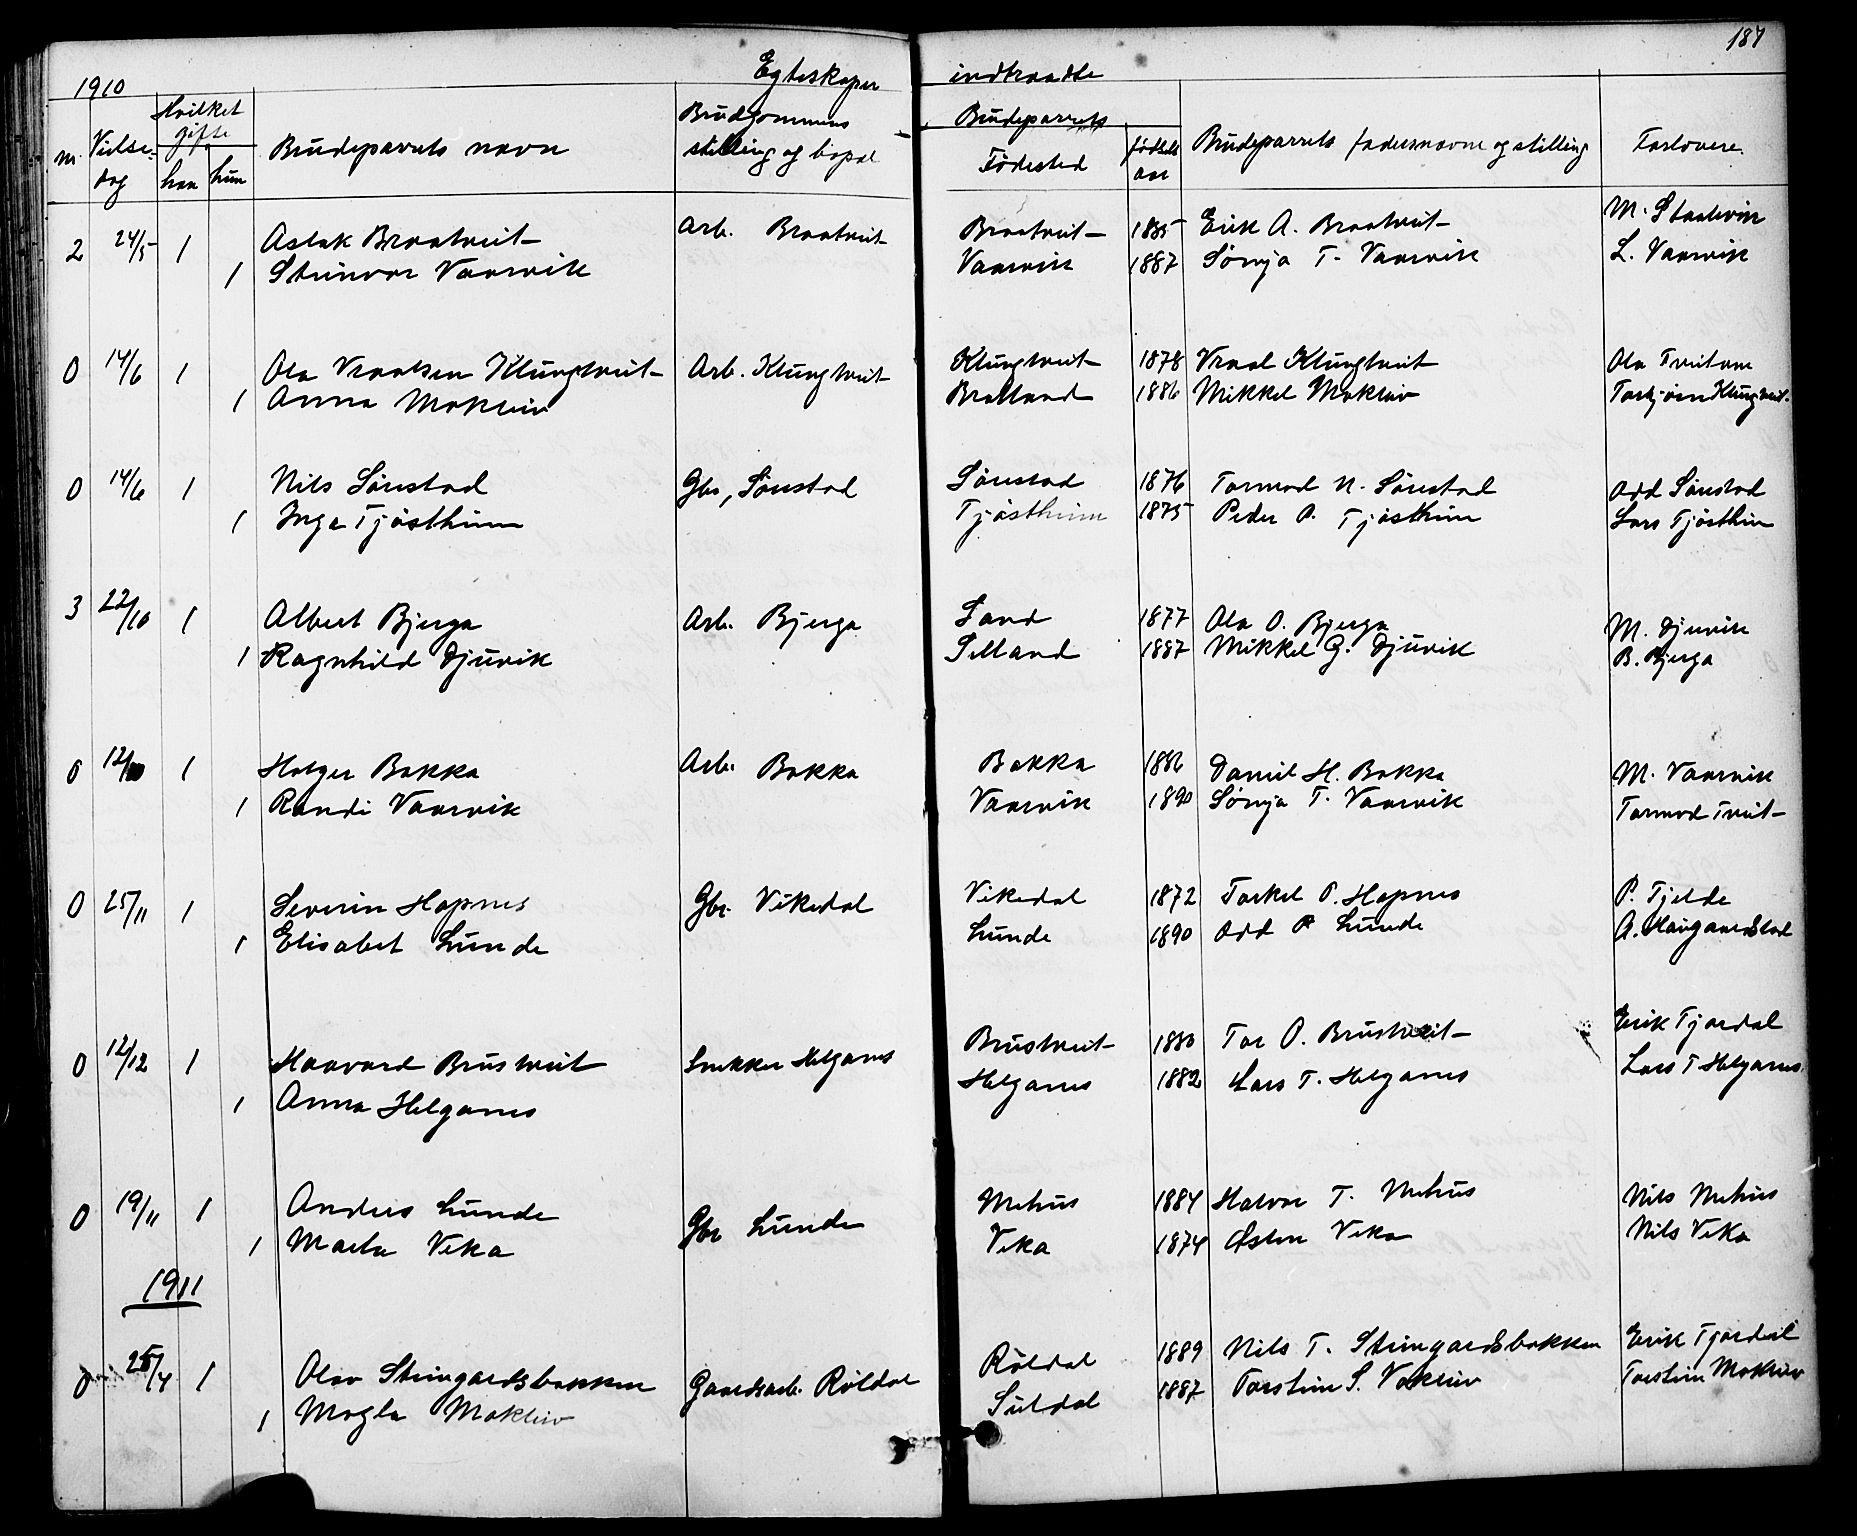 187
1910 Egteskaper indtraadte
Hvilket gifte Brudgommens Brudeparrets
Vielsedag han hun Brudeparrets navn stilling og bopæl Födested födselsaar Brudeparrets fadersnavne og stilling Forlovere.
2 24/5 1 Aslak Braatveit Arb. Braatveit Braatveit 1885 Erik A. Braatveit M. Staalvik
1 Steinvor Vaarvik Vaarvik 1887 Sönja T. Vaarvik L. Vaarvik
0 14/6 1 Ola Vraalsen Klungtveit Arb. Klungtveit Klungtveit 1878 Vraal Klungtveit Ola Tveitane
1 Anna Mokleiv Bratland 1886 Mikkel Mokleiv Torbjörn Klungtveit.
0 14/6 1 Nils Sönstad Gbr, Sönstad Sönstad 1876 Tormod N. Sönstad Odd Sönstad
1 Inga Tjöstheim Tjöstheim 1875 Peder P. Tjöstheim Lars Tjösthim
3 22/10 1 Albert Bjerga Arb. Bjerga Sand 1877 Ola O. Bjerga M. Djuvik
1 Ragnhild Djuvik Selland 1887 Mikkel G. Djuvik B. Bjerga
0 12/10 1 Holger Bakka Arb. Bakka Bakka 1886 Daniel H. Bakka M. Vaarvik
1 Randi Vaarvik Vaarvik 1890 Sönja T. Vaarvik Tormod Tveit
0 25/11 1 Severin Hapnes Gbr. Vikedal Vikedal 1872 Torkel O. Hapnes P. Tjelde
1 Elisabet Lunde Lunde 1890 Odd P Lunde A.
0 12/12 1 Haavard Brustveit Snekker Helganes Brustveit 1880 Tor O. Brustveit Erik Tjordal
1 Anna Helganes Helganes 1882 Lars T. Helganes Lars T Helganes.
0 19/11 1 Anders Lunde Gbr Lunde Mehus 1884 Halvor T. Mehus Nils Mehus
1 Marta Veka Veka 1874 Östen Veka Nils Veka
1911
0 25/4 1 Olav Steingardsbakken Gaardsarb. Röldal Röldal 1889 Nils T. Steingardsbakken Erik Tjordal
1 Magla Mokleiv Suldal 1887 Torstein S. Torstein Mokleiv